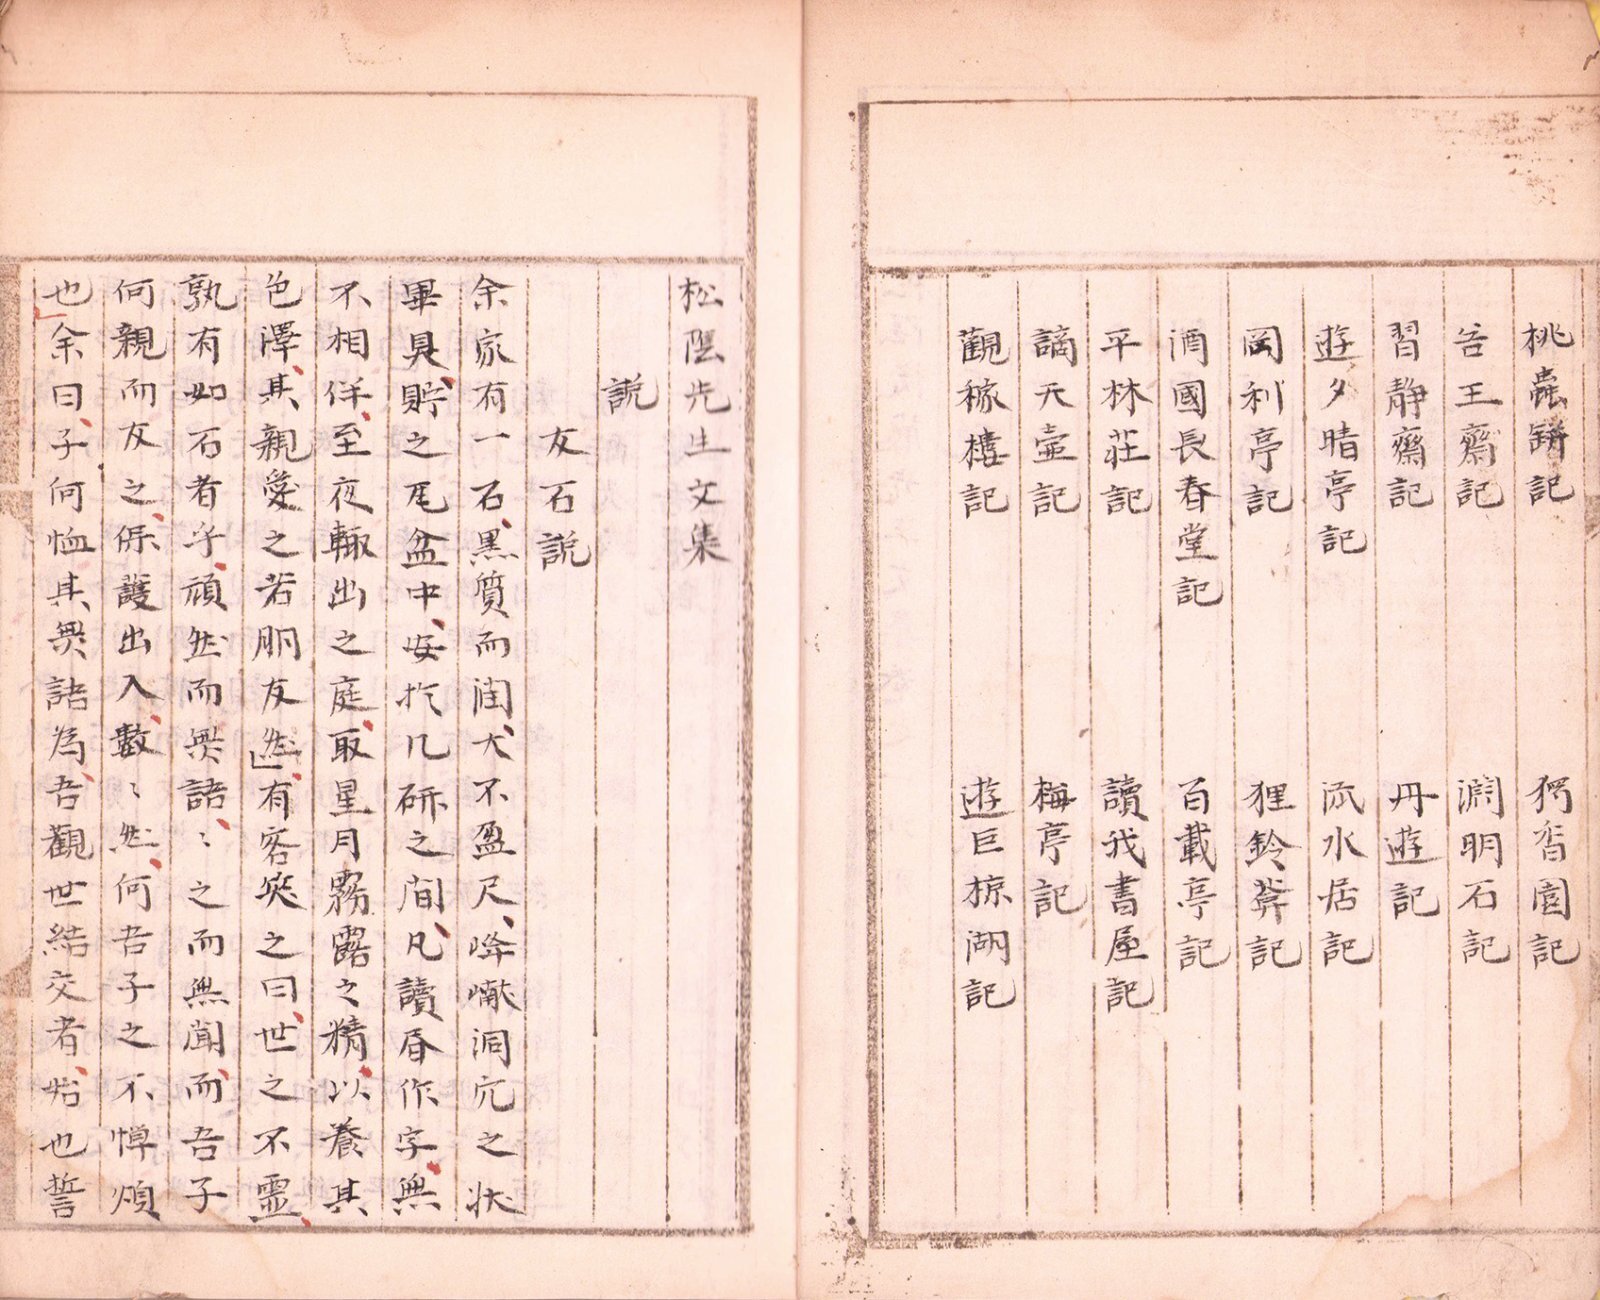 桃蟲缾記　香園記
告王齋記　淵明石記
習静齋記　丹遊記
遊夕晴亭記　流水居記
罔利亭記　狸鈴葬記
酒國長春堂記　百載亭記
平林莊記　讀我書屋記
謫天壺記　梅亭記
觀稼樓記　遊巨椋湖記
松陰先生文集
説
友石説
余家有一石、黒質而潤、大不盈尺、峰巘洞穴之状
畢具、貯之瓦盆中、安於几硏之間、凡讀書作字、無
不相伴、至夜輙出之庭、取星月霧露之精、以養其
色澤、其親愛之若朋友然」有客笑之曰、世之不靈、
孰有如石者乎、頑然而無語、〻之而無聞、而吾子
何親而友之、保護出入、數〻然、何吾子之不憚煩
也」余曰、子何恤其無語為、吾觀世結交者、始也誓